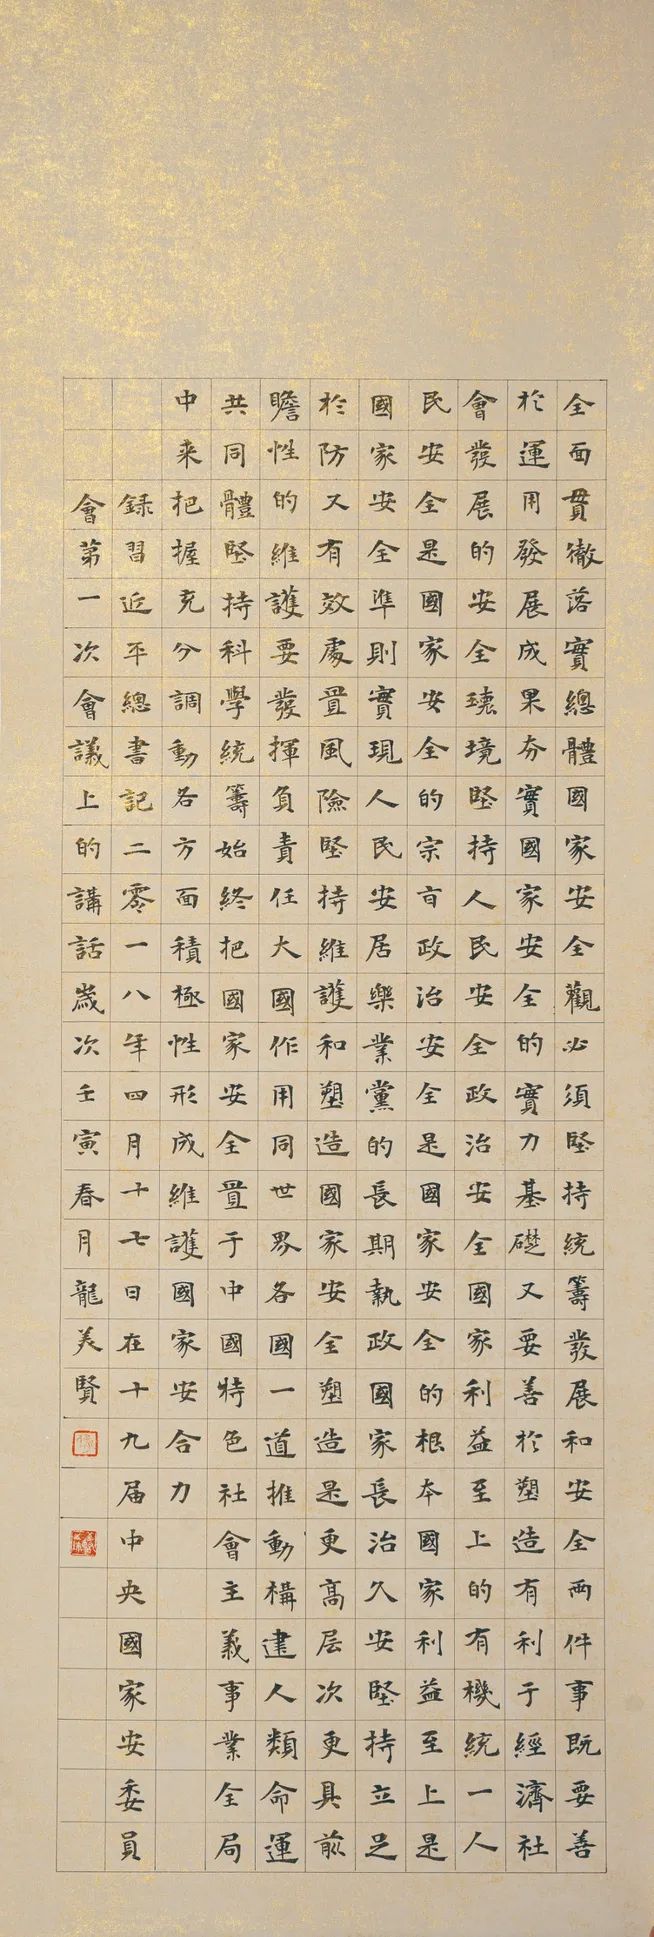 全面貫徹落實總體國家安全觀必須堅持統籌發展和安全兩件事既要善
於運用發展成果夯實國家安全的實力基礎又要善於塑造有利于經濟社
會發展的安全環境堅持人民安全政治安全國家利益至上的有機統一人
民安全是國家安全的宗旨政治安全是國家安全的根本國家利益至上是
國家安全準則實現人民安居樂業黨的長期執政國家長治久安堅持立足
於防又有效處置風險堅持維護和塑造國家安全塑造是更高层次更具前
瞻性的維護要發揮負責任大國作用同世界各國一道推動構建人類命運
共同體堅持科學統籌始終把國家安全置于中國特色社會主義事業全局
中来把握充分調動各方面積極性形成維護國家安合力
録習近平總書記二零一八年四月十七日在十九届中央國家安委員
會第一次會議上的講話歲次壬寅春月龍美賢